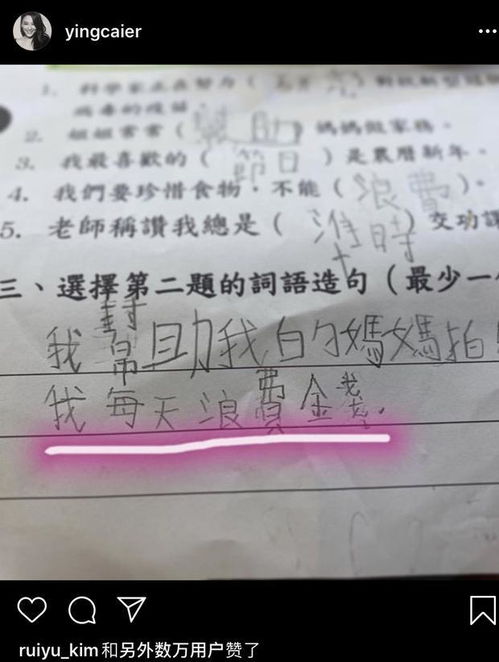 yingcaier
1. 科學家正在努力（
病毒的疫苗。
2. 姐姐常常（幫助）媽媽做家務。
3. 我最喜歡的（節日）是農曆新年。
4. 我們要珍惜食物，不能（浪費）。
5. 老師稱讚我總是（準時）交功課
三、選擇第二題的詞語造句（最少一
我幫助我的媽媽拍
我每天浪費金錢。
ruiyu_kim和另外数万用户赞了